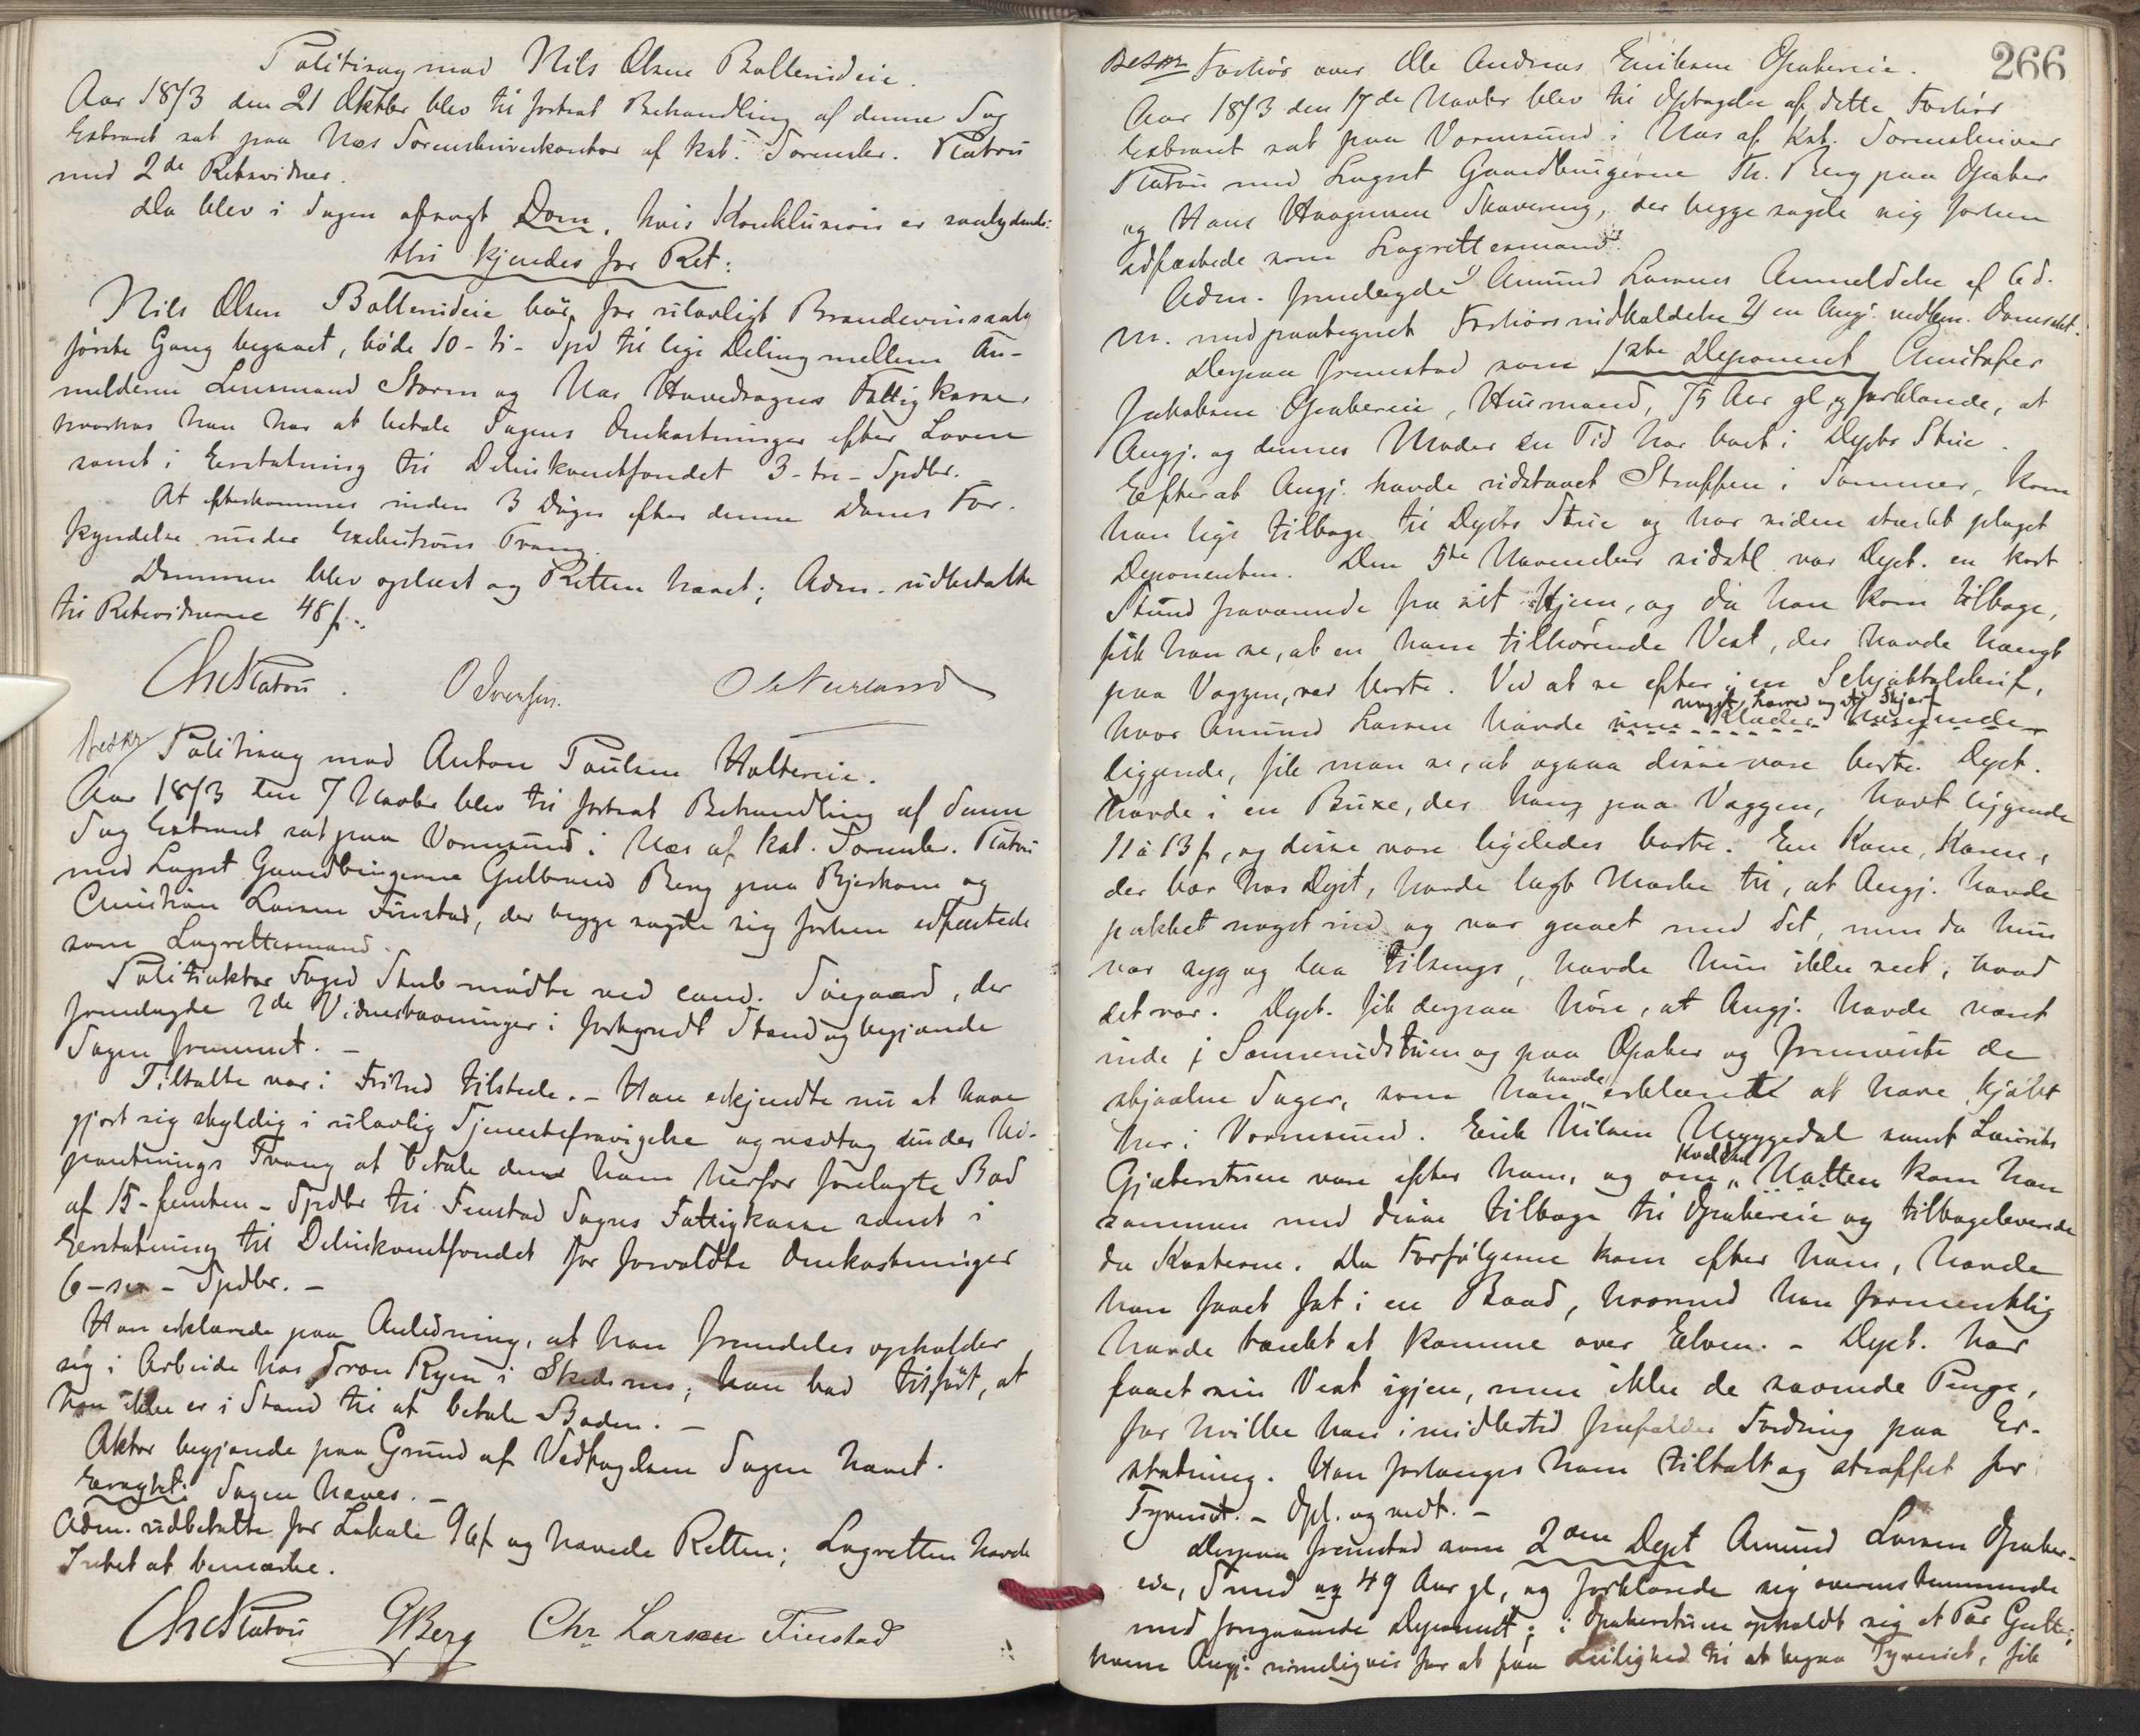 Politisag mod Nils Olsen Ballerudeie.
Aar 1873 den 21 Oktbr blev til fortsat Behandling af denne Sag
Extraret sat paa Næs Sorenskriverkontor af kst. Sorenskr. Platou
med 2de Retsvidner.
Da blev i Sagen afsagt Dom, hvis Konklusion er saalydende:
thi kjendes for Ret:
Nils Olsen Ballerudeie bør, for ulovligt Brændevinssalg
første Gang begaaet, bøde 10 - ti - Spd til lige Deling mellem An-
melderen Lensmand Storm og Næs Hovedsogns Fattigkasse,
hvorhos han har at betale Sagens Omkostninger efter Loven
samt i Erstatning til Delinkventfondet 3 - tre - Spdlr.
At efterkommes inden 3 Dage efter denne Doms For-
kyndelse under Exekutions Tvang.
Dommen blev oplæst og Retten hævet; Adm. udbetalte
til Retsvidnerne 48 f.
Chr Platou. O Iversen. O
Beskr Politisag mod Anton Paulsen Haltereie.
Aar 1873 den 7 Novbr blev til fortsat Behandling af denne
Sag Extraret sat paa Vormsund i Næs af kst. Sorenskr. Platou
med Lagret Gaardbrugerne Gulbrand Berg paa Bjerkom og
Christian Larsen Finstad, der begge sagde sig forhen edfæstede
som Lagrettesmænd.
Politiaktor Foged Stub mødte ved cand. Søegaard, der
fremlagde 2de Vidnestævninger i forkyndt Stand og begjærede
Sagen fremmet. -
Tiltalte var i Frihed tilstede. - Han erkjendte nu at have
gjort sig skyldig i ulovlig Tjenestefravigelse og vedtog under Ud-
pantnings Tvang at betale den ham herfor forelagte Bod
af 15 - femten - Spdlr til Fenstad Sogns Fattigkasse samt i
Erstatning til Delinkventfondet for forvoldte Omkostninger
6 - sex - Spdlr. -
Han erklærede paa Anledning, at han fremdeles opholder
sig i Arbeide hos Iver Ryen i Skedsmo; han bad tilført, at
han ikke er i Stand til at betale Boden. -
Aktor begjærede paa Grund af Vedtagelsen Sagen hævet.
Eragtet: Sagen hæves. -
Adm. udbetalte for Lokale 96 f og hævede Retten; Lagretten havde
Intet at bemærke.
Chr Platou GBerg Chr Larsen Finstad
266
Beskr Forhør over Ole Andreas Eriksen Opakereie.
Aar 1873 den 17de Novbr blev til Optagelse af dette Forhør
Extraret sat paa Vormsund i Næs af kst. Sorenskriver
Platou med Lagret Gaardbrugerne Th. Berg paa Opaker
og Hans Haagensen Skovereng, der begge sagde sig forhen
edfæstede som Lagrettesmænd.
Adm. fremlagde 1) Amund Larsens Anmeldelse af 6 d.
M. med paategnet Forhørsindkaldelse 2) en Angj. vedkom. Domsakt.
Derpaa fremstod som 1ste Deponent Christofer
Jakobsen Opakereie, Husmand, 75 Aar gl, og forklarede, at
Angj. og dennes Moder en Tid har boet i Depts Stue.
Efterat Angj. havde udstaaet Straffen i Sommer, kom
han lige tilbage til Depts Stue og har siden stærkt plaget
Deponenten. Den 5te November sidstl. var Dept. en kort
Stund fraværende fra sit Hjem, og da han kom tilbage,
fik han se, at en ham tilhørende Vest, der havde hængt
paa Væggen, var borte. Ved at se efter i en
hvor Amund Larsen havde nogle Klæder
liggende, fik man se, at ogsaa disse vare borte. Dept.
havde i en Buxe, der hang paa Væggen, havt liggende
11 à 13 f, og disse vare ligeledes borte. En Kone, Karen,
der bor hos Dept, havde lagt Mærke til, at Angj. havde
pakket noget ind og var gaaet med det, men da hun
var syg og laa tilsengs, havde hun ikke seet, hvad
det var. Dept. fik derpaa høre, at Angj. havde været
inde i Sannerudstuen og paa Opaker og fremviste de
stjaalne Sager, som han havde erklæret at have kjøbt
her i Vormsund. Erik Nilsen Myggedal samt Lauritz
Gjæterstuen vare efter ham, og om Kvelden Natten kom han
sammen med disse tilbage til Opakereie og tilbageleverede
da Kosterne. Da Forfølgerne kom efter ham, havde
han faaet fat i en Baad, hvormed han formentlig
havde tænkt at komme over Elven. - Dept. har
faaet sin Vest igjen, men ikke de savnede Penge,
for hvilke han imidlertid frafalder Fordring paa Er-
statning. Han forlanger ham tiltalt og straffet for
Tyveriet. - Opl. og vedt. -
Derpaa fremstod som 2den Dept Amund Larsen Opaker-
eie, Smed og 49 Aar gl, og forklarede sig overensstemmende
med foregaaende Deponent; i Opakerstuen opholdt sig et Par Gutter,
hvem Angj. rimeligvis for at faa Leilighed til at begaa Tyveriet, fik